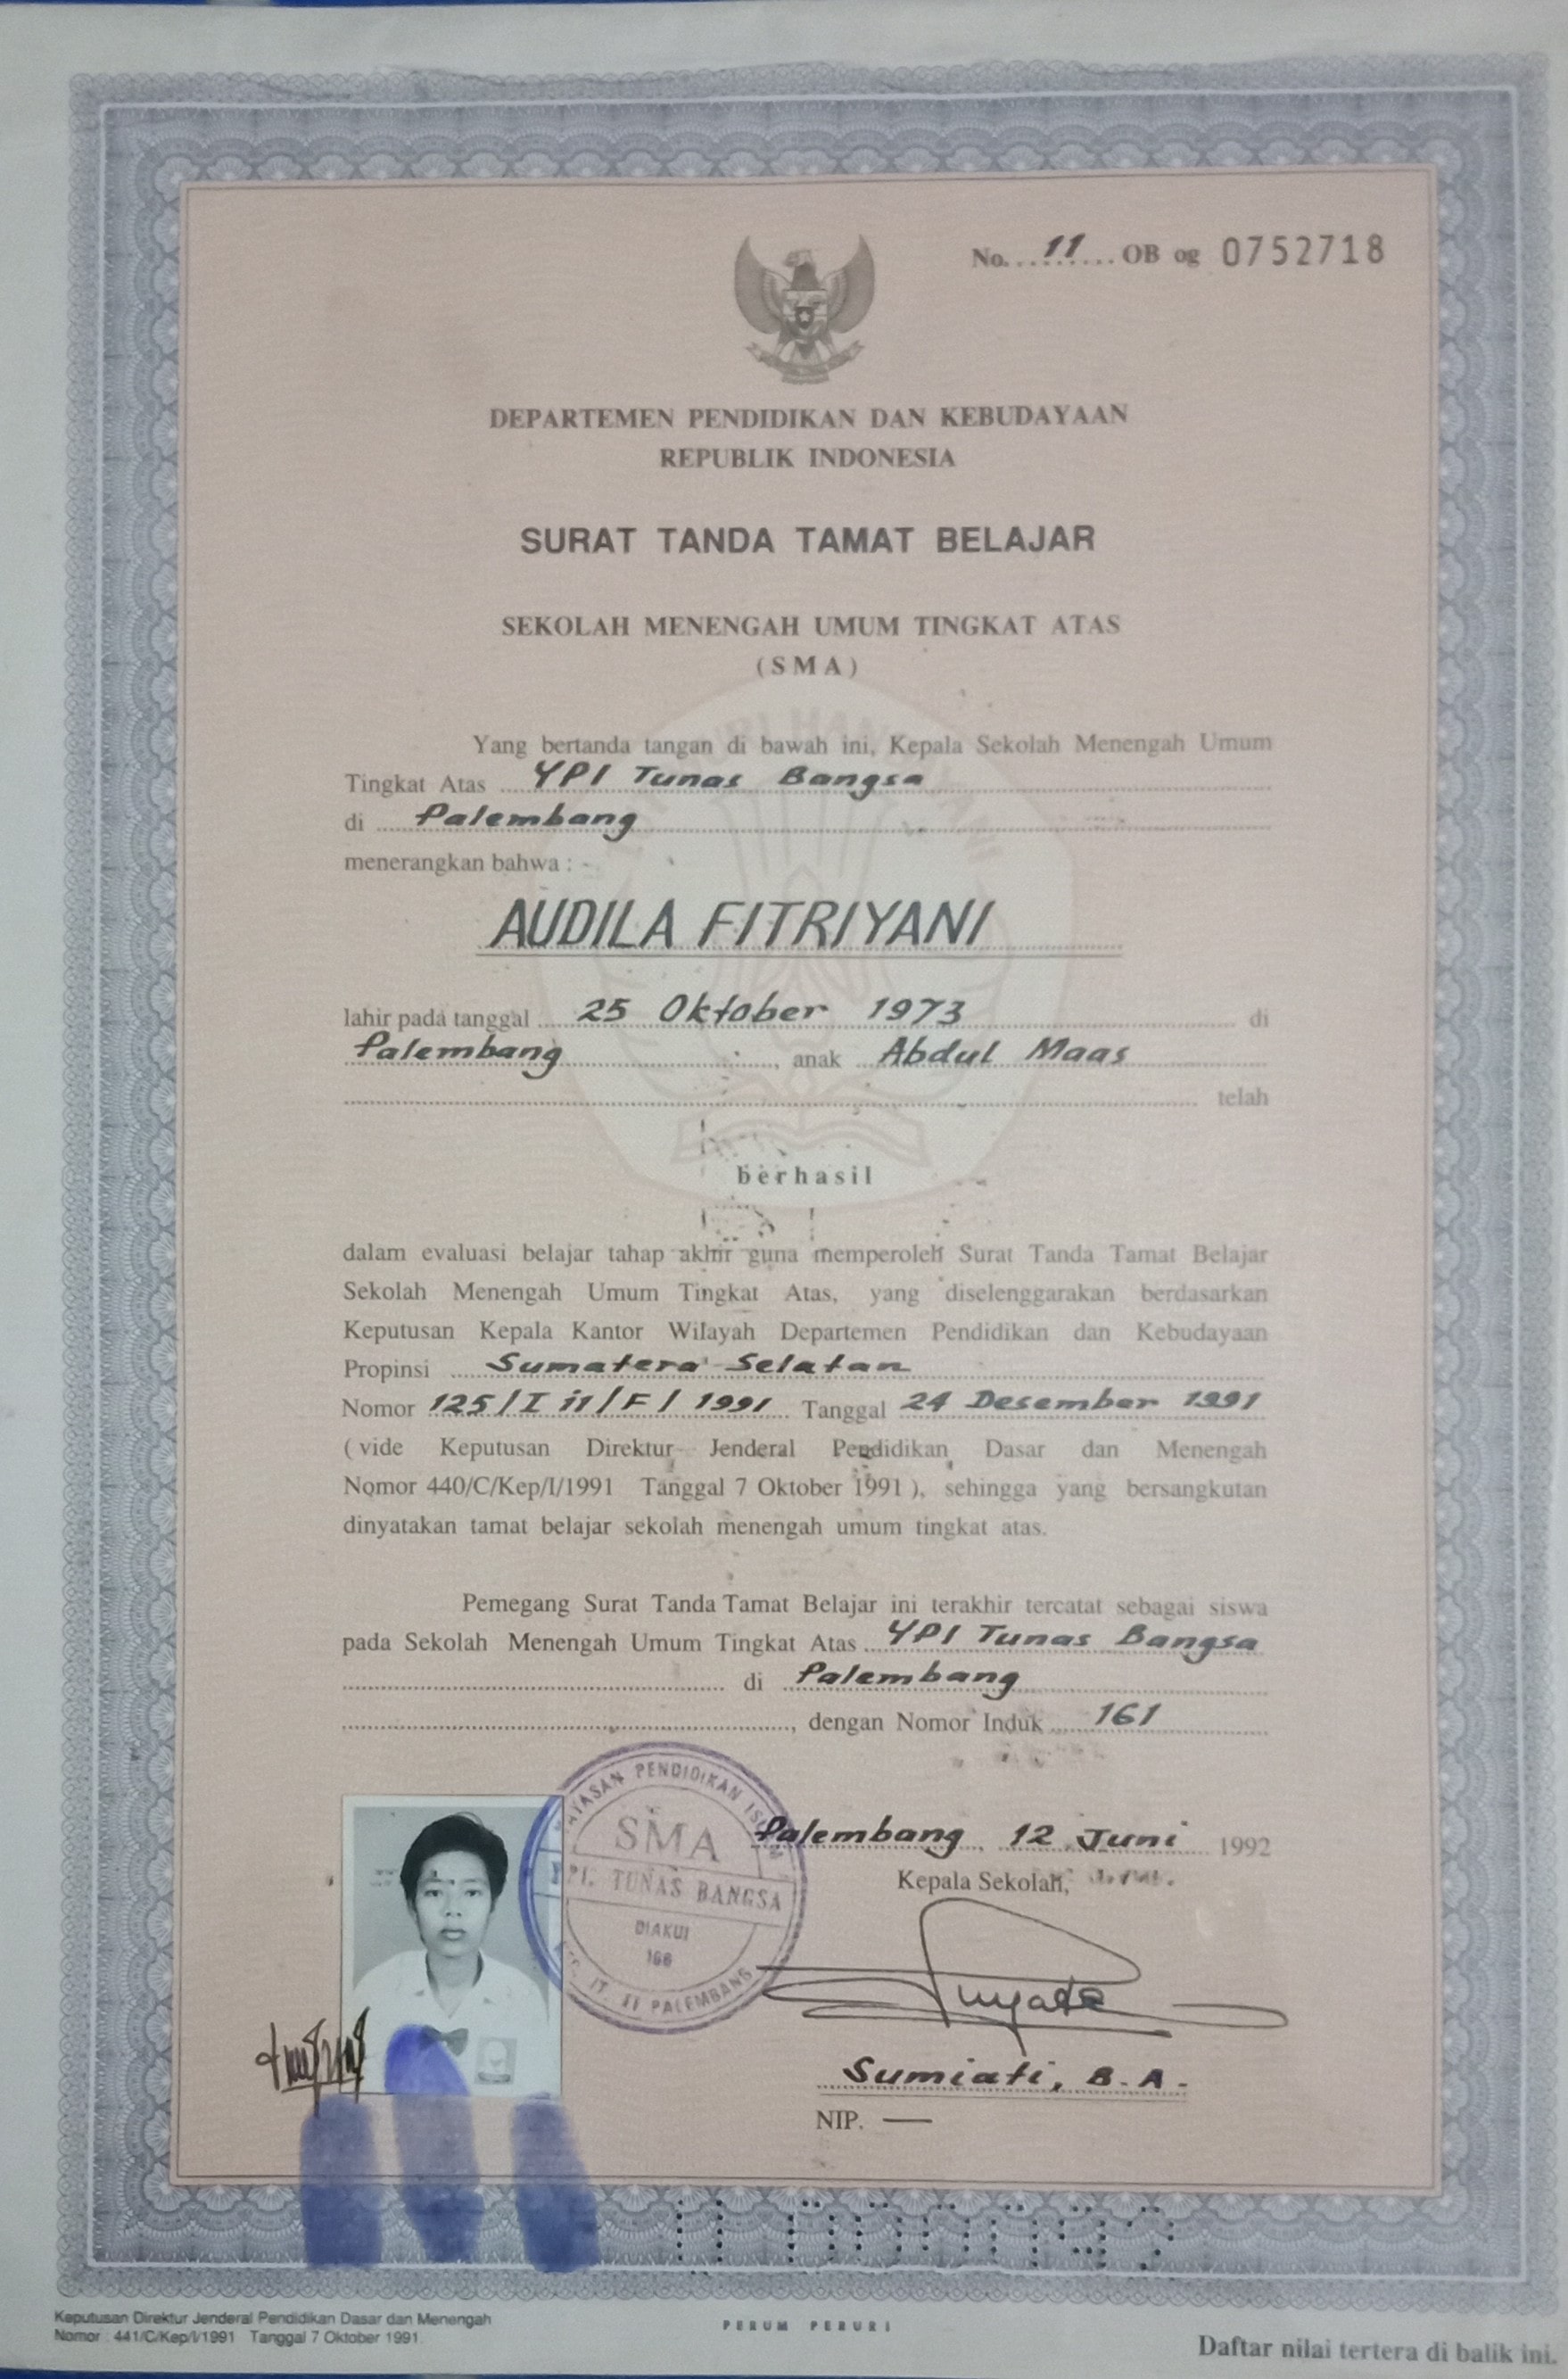 No. 11 OB og 0752718
DEPARTEMEN PENDIDIKAN DAN KEBUDAYAAN
REPUBLIK INDONESIA
SURAT TANDA TAMAT BELAJAR
SEKOLAH MENENGAH UMUM TINGKAT ATAS
(SMA)
Yang bertanda tangan di bawah ini, Kepala Sekolah Menengah Umum
Tingkat Atas YPI Tunas Bangsa
di Palembang
menerangkan bahwa :
AUDILA FITRIYANI
lahir pada tanggal 25 Oktober 1973 di
Palembang, anak Abdul Maas
telah
berhasil
dalam evaluasi belajar tahap akhir guna memperoleh Surat Tanda Tamat Belajar
Sekolah Menengah Umum Tingkat Atas, yang diselenggarakan berdasarkan
Keputusan Kepala Kantor Wilayah Departemen Pendidikan dan Kebudayaan
Propinsi Sumatera Selatan
Nomor 125/I 11/F/1991 Tanggal 24 Desember 1991
( vide Keputusan Direktur Jenderal Pendidikan Dasar dan Menengah
Nomor 440/C/Kep/I/1991 Tanggal 7 Oktober 1991 ), sehingga yang bersangkutan
dinyatakan tamat belajar sekolah menengah umum tingkat atas.
Pemegang Surat Tanda Tamat Belajar ini terakhir tercatat sebagai siswa
pada Sekolah Menengah Umum Tingkat Atas YPI Tunas Bangsa
di Palembang
, dengan Nomor Induk 161
YAYASAN PENDIDIKAN ISLAM
SMA
YPI. TUNAS BANGSA
DIAKUI
II PALEMBANG
Palembang, 12 Juni 1992
Kepala Sekolah,
Sumiati, B.A.
NIP. —
Keputusan Direktur Jenderal Pendidikan Dasar dan Menengah
Nomor : 441/C/Kep/I/1991 Tanggal 7 Oktober 1991
PERUM PERURI
Daftar nilai tertera di balik ini.